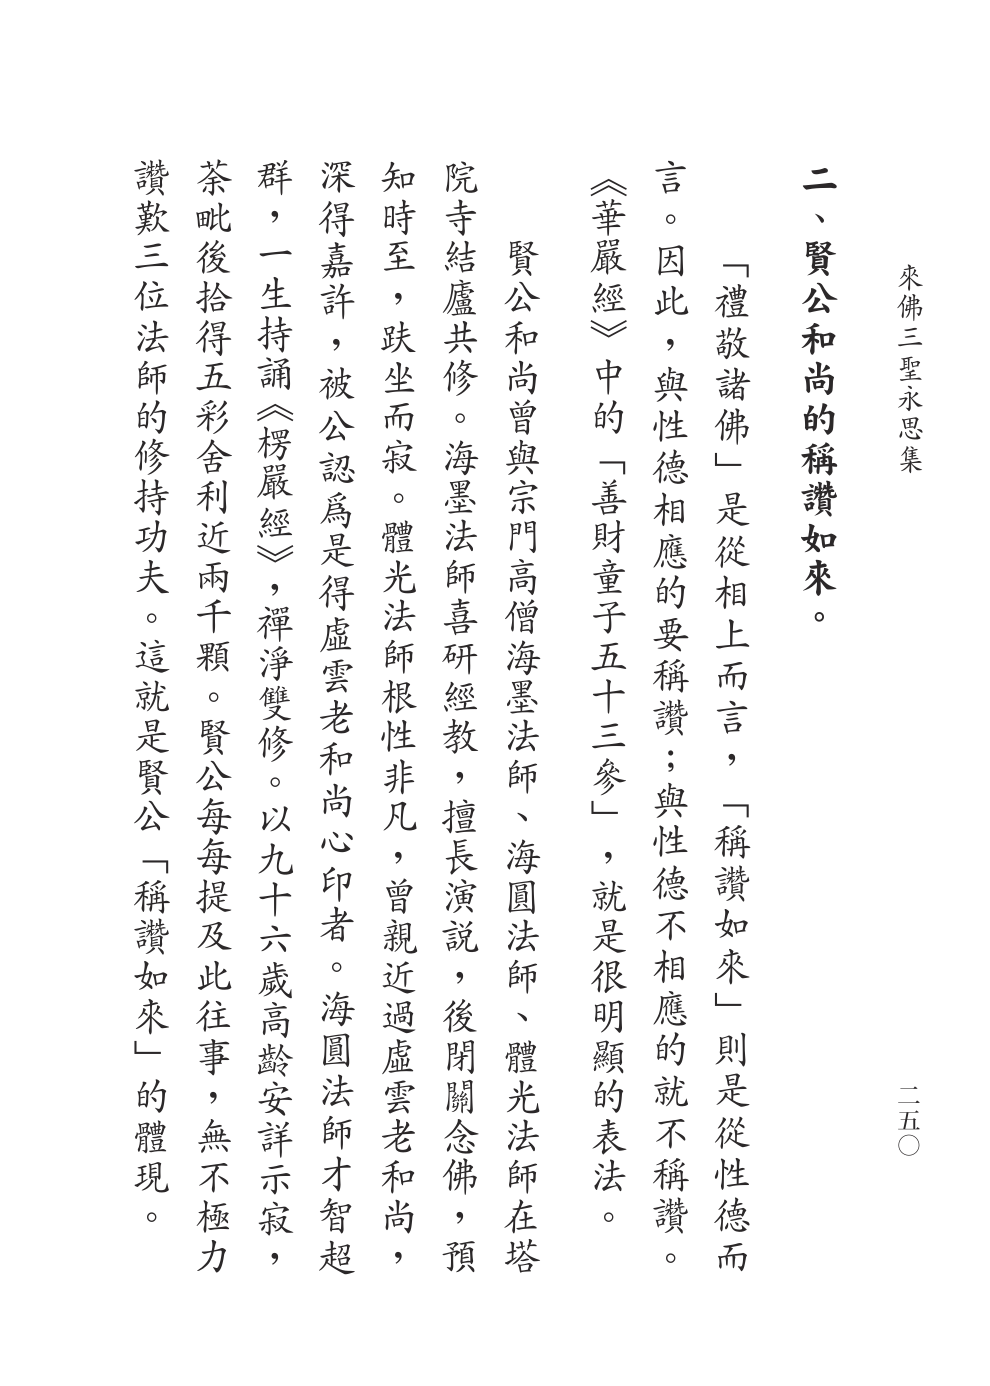 來佛三聖永思集
二五〇
二、賢公和尚的稱讚如來。
「禮敬諸佛」是從相上而言，「稱讚如來」則是從性德而
言。因此，與性德相應的要稱讚；與性德不相應的就不稱讚。
《華嚴經》中的「善財童子五十三參」，就是很明顯的表法。
賢公和尚曾與宗門高僧海墨法師、海圓法師、體光法師在塔
院寺結廬共修。海墨法師喜研經教，擅長演說，後閉關念佛，預
知時至，趺坐而寂。體光法師根性非凡，曾親近過虛雲老和尚，
深得嘉許，被公認爲是得虛雲老和尚心印者。海圓法師才智超
群，一生持誦《楞嚴經》，禪淨雙修。以九十六歲高齡安詳示寂，
荼毗後拾得五彩舍利近兩千顆。賢公每每提及此往事，無不極力
讚歎三位法師的修持功夫。這就是賢公「稱讚如來」的體現。